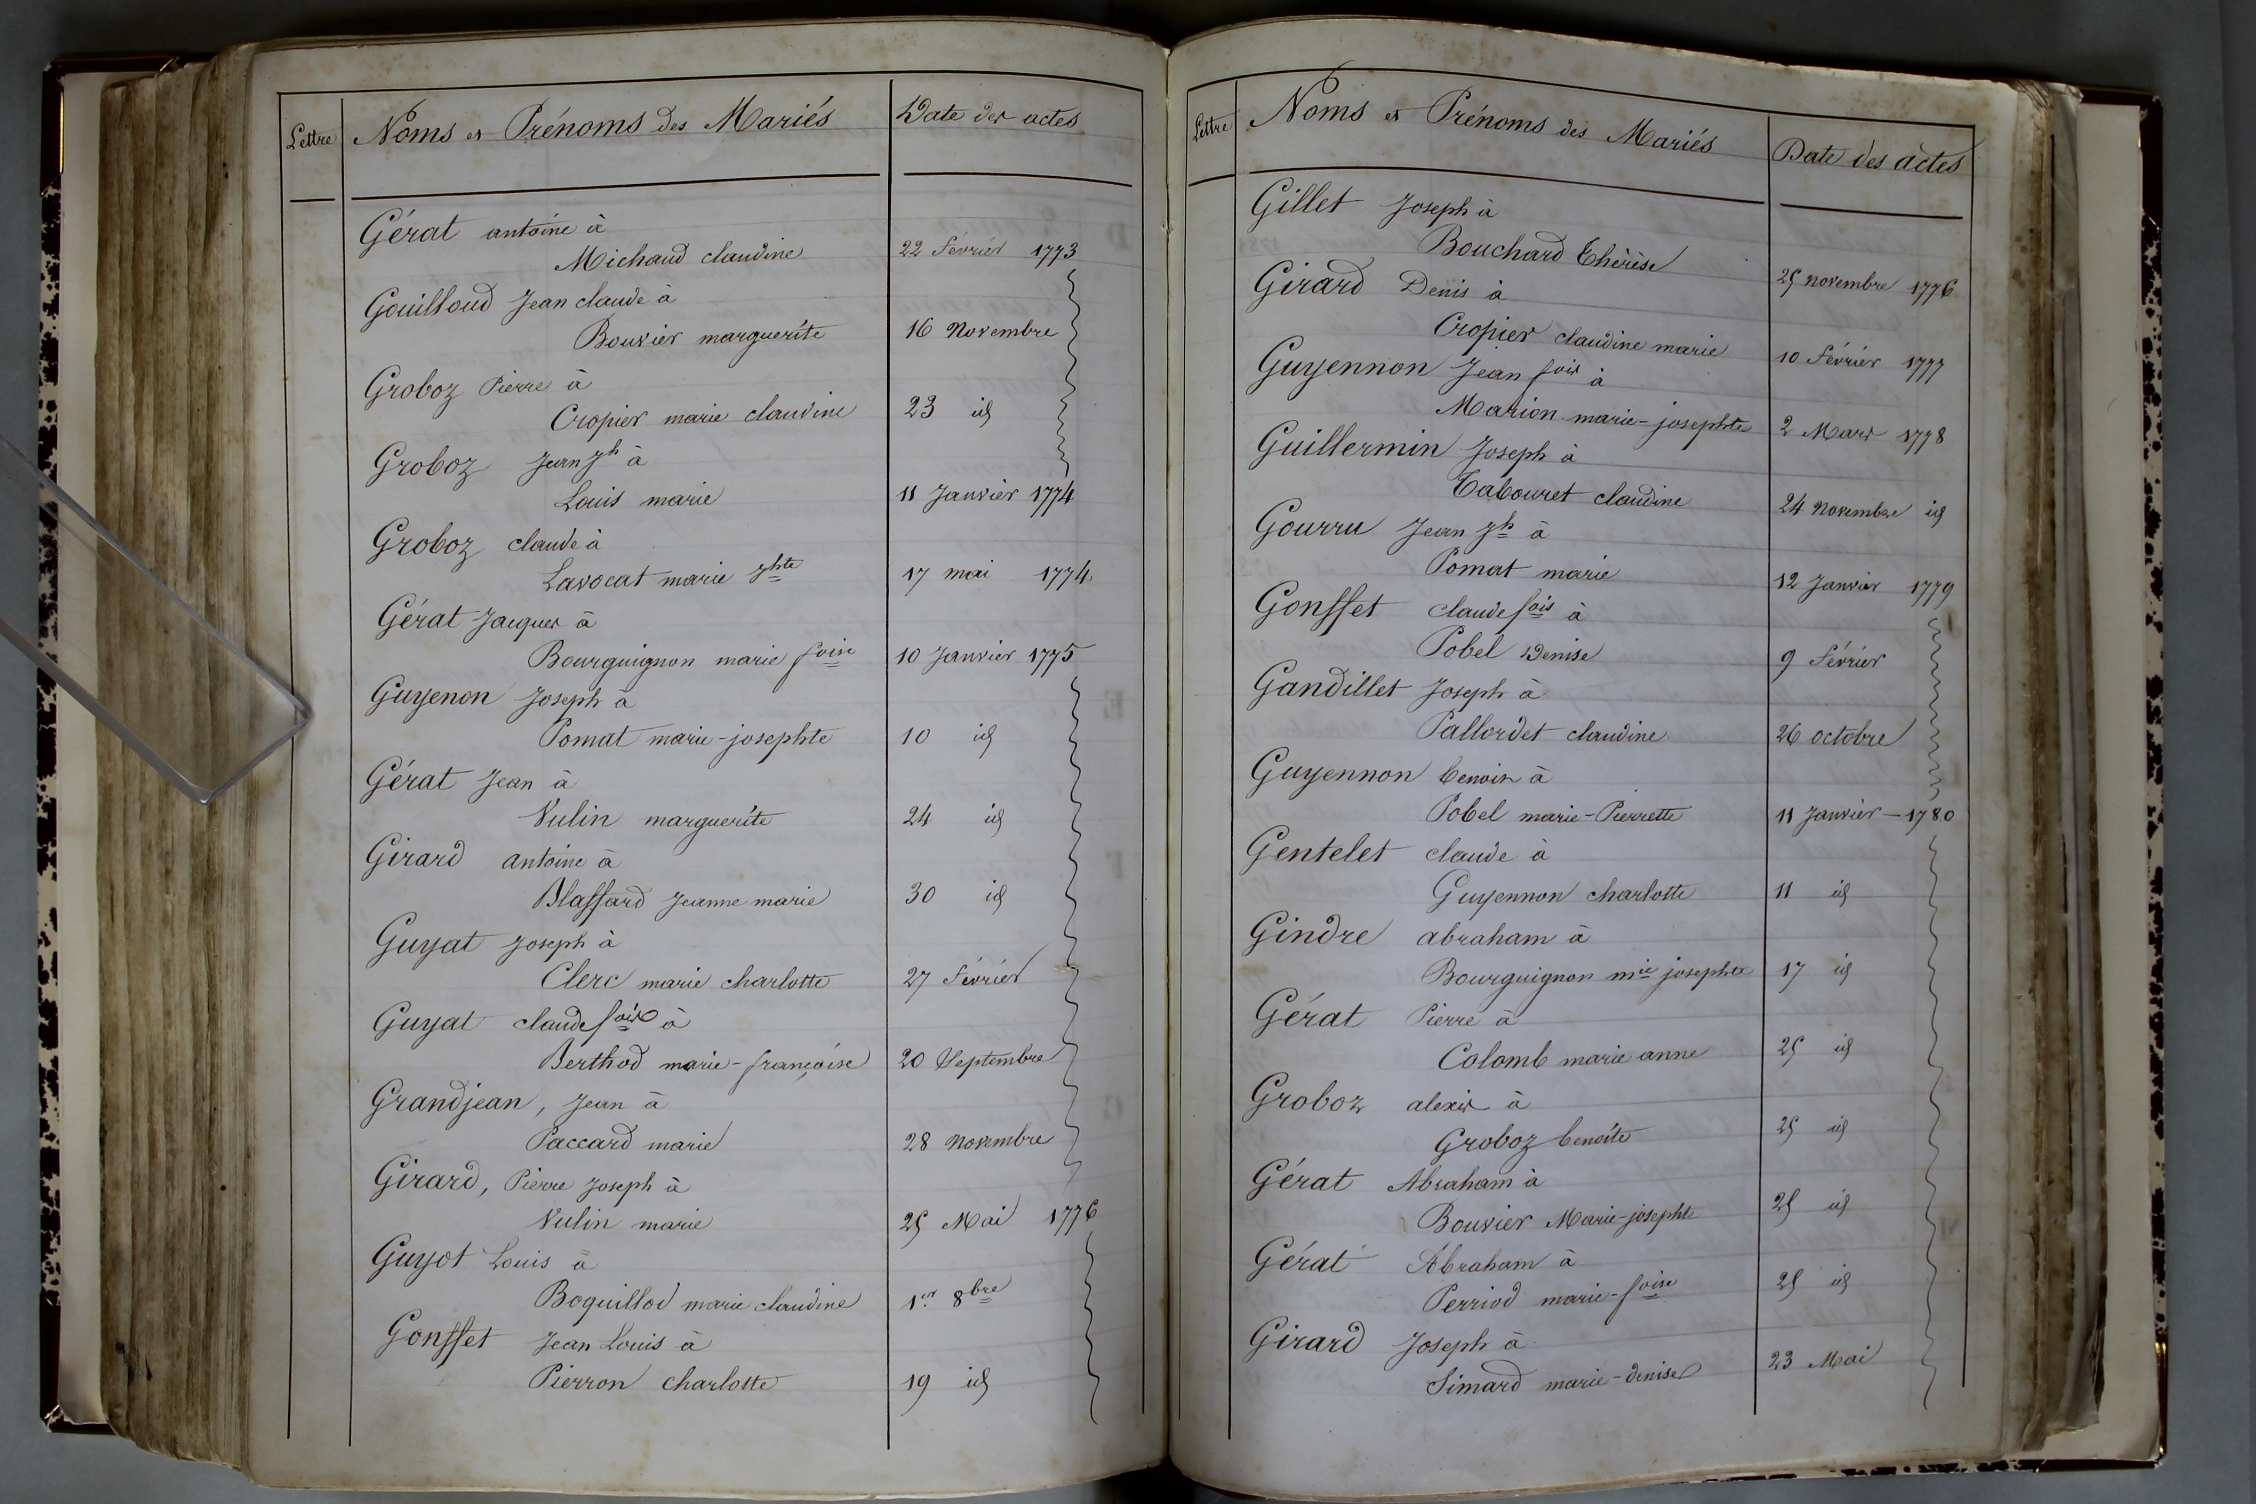 Lettre Noms et Prénoms des Mariés Date des actes
Gérat antoine à
Michaud claudine 22 Février 1773
Gouilloud Jean claude à
Bouvier marguerite 16 Novembre
Groboz Pierre à
Cropier marie claudine 23 id
Groboz Jean Jh à
Louis marie 11 Janvier 1774
Groboz claude à
Lavocat marie Jhte 17 mai 1774
Gérat Jacques à
Bourguignon marie foise 10 Janvier 1775
Guyenon Joseph à
Pomat marie-josephte 10 id
Gérat Jean à
Vulin marguerite 24 id
Girard antoine à
Blassard Jeanne marie 30 id
Guyat Joseph à
Clerc marie charlotte 27 Février
Guyat claude fois à
Berthod marie-françoise 20 Septembre
Grandjean, Jean à
Paccard marie 28 novembre
Girard, Pierre Joseph à
Vulin marie 25 Mai 1776
Guyot Louis à
Boguillod marie claudine 1er 8bre
Gonsset Jean Louis à
Pierron charlotte 19 id
Lettre Noms et Prénoms des Mariés Date des actes
Gillet Joseph à
Bouchard Thérèse 25 novembre 1776
Girard Denis à
Cropier claudine marie 10 Février 1777
Guyennon Jean fois à
Marion marie-josephte 2 Mars 1778
Guillermin Joseph à
Tabouret claudine 24 novembre id
Gourru Jean Jh à
Pomat marie 12 Janvier 1779
Gonsset claude fois à
Pobel Denise 9 Février
Gandillet Joseph à
Pallordet claudine 26 octobre
Guyennon benoit à
Pobel marie-Pierrette 11 Janvier - 1780
Gentelet claude à
Guyennon charlotte 11 id
Gindre abraham à
Bourguignon mie josephte 17 id
Gérat Pierre à
Colomb marie anne 25 id
Groboz alexis à
Groboz benoite 25 id
Gérat Abraham à
Bouvier Marie-josephte 25 id
Gérat Abraham à
Perriod marie-foise 25 id
Girard Joseph à
Simard marie-denise 23 Mai